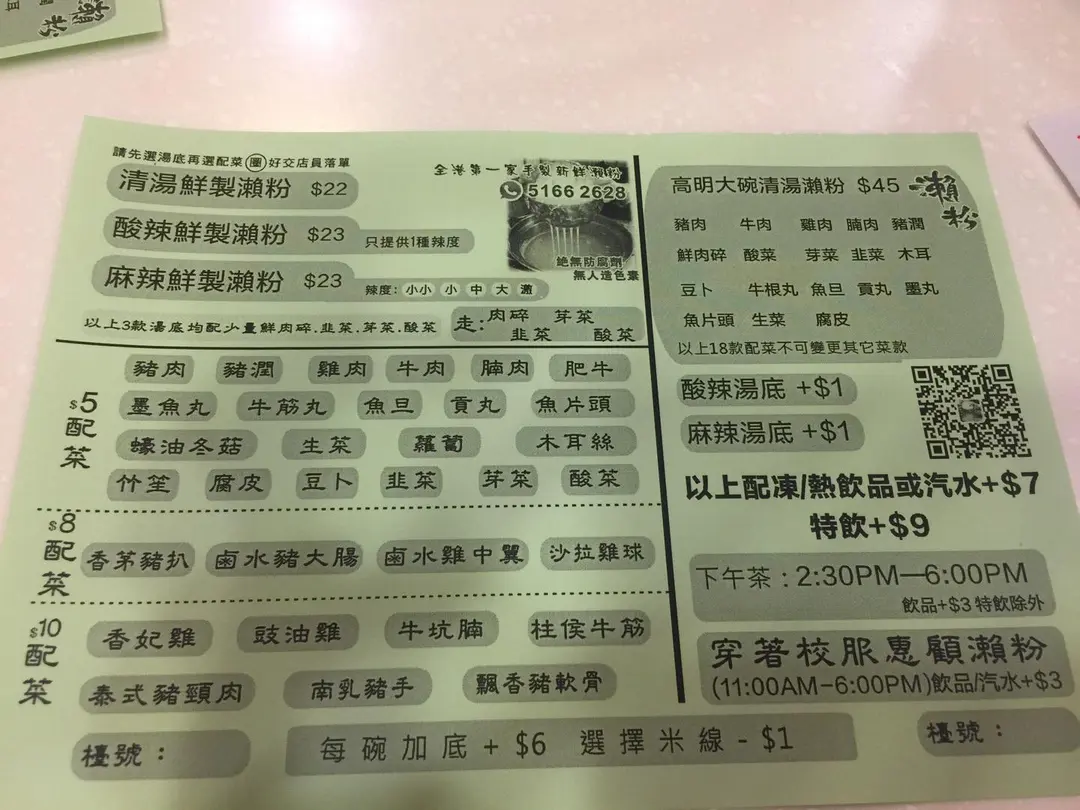 請先選湯底再選配菜圈好交店員落單
清湯鮮製瀨粉 $22
酸辣鮮製瀨粉 $23 只提供1種辣度
麻辣鮮製瀨粉 $23 辣度: 小小 小 中 大 激
全港第一家手製新鮮瀨粉
5166 2628
絶無防腐劑
無人造色素
以上3款湯底均配少量鮮肉碎.韭菜.芽菜.酸菜
走: 肉碎 芽菜
韭菜 酸菜
$5配菜
豬肉 豬潤 雞肉 牛肉 腩肉 肥牛
墨魚丸 牛筋丸 魚旦 貢丸 魚片頭
蠔油冬菇 生菜 蘿蔔 木耳絲
竹笙 腐皮 豆卜 韭菜 芽菜 酸菜
$8配菜
香茅豬扒 鹵水豬大腸 鹵水雞中翼 沙拉雞球
$10配菜
香妃雞 豉油雞 牛坑腩 柱侯牛筋
泰式豬頸肉 南乳豬手 飄香豬軟骨
檯號：
每碗加底 + $6 選擇米線 - $1
高明大碗清湯瀨粉 $45
瀨粉
豬肉 牛肉 雞肉 腩肉 豬潤
鮮肉碎 酸菜 芽菜 韭菜 木耳
豆卜 牛根丸 魚旦 貢丸 墨丸
魚片頭 生菜 腐皮
以上18款配菜不可變更其它菜款
酸辣湯底 +$1
麻辣湯底 +$1
以上配凍/熱飲品或汽水+$7
特飲+$9
下午茶 : 2:30PM—6:00PM
飲品+$3 特飲除外
穿著校服惠顧瀨粉
(11:00AM-6:00PM)飲品/汽水+$3
檯號：